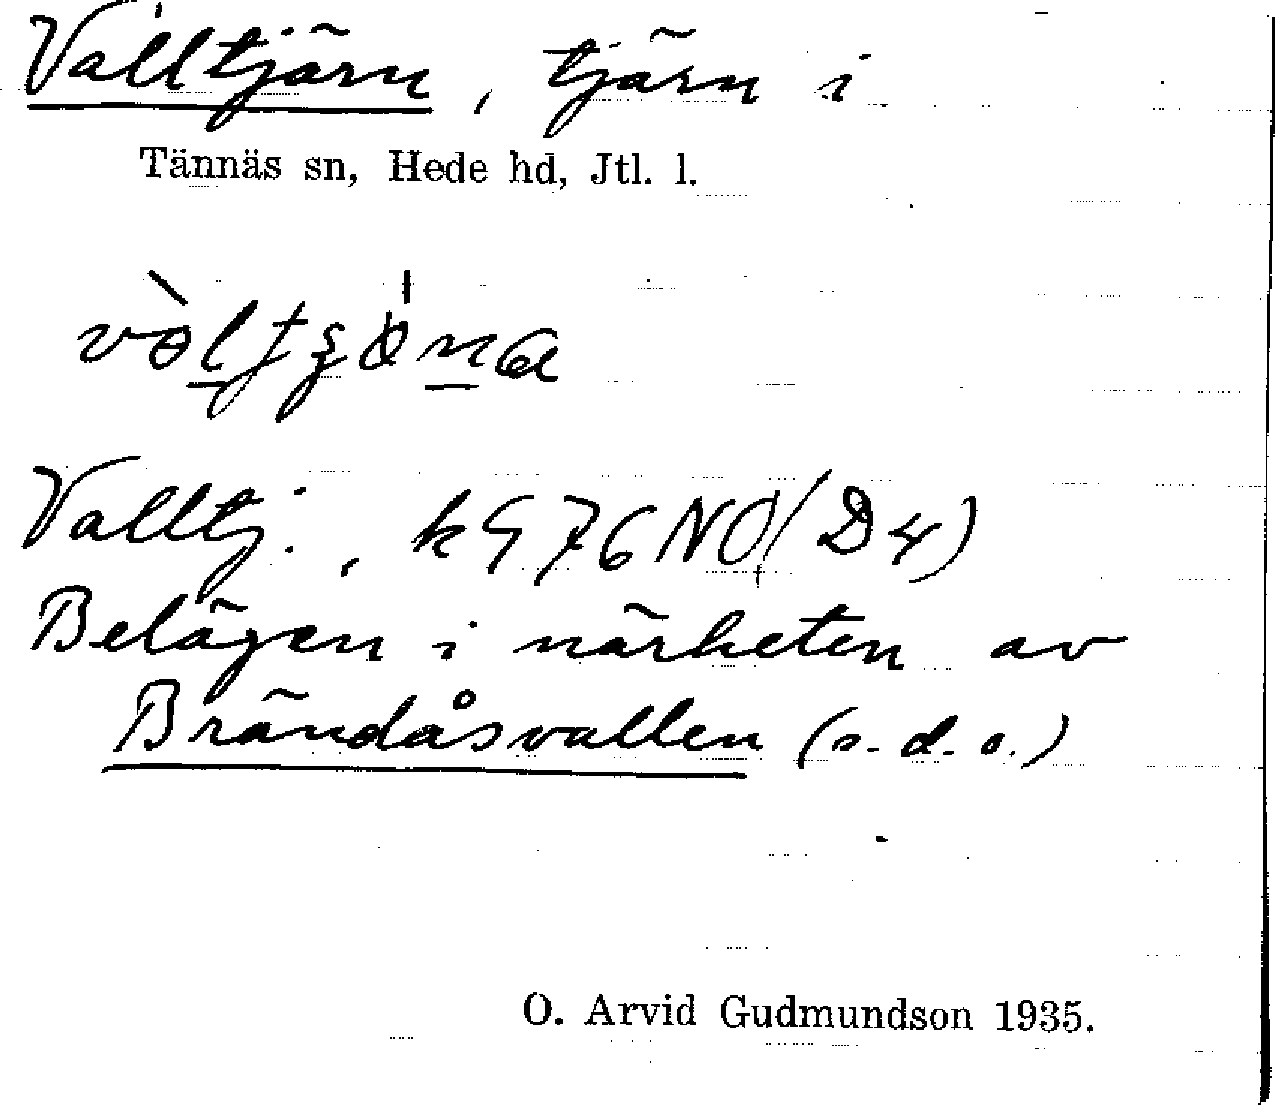 Valltjärn, tjärn i
Tännäs sn, Hede hd, Jtl. l.
Valltj., k 976 NO (D 4)
Belägen i närheten av
Brändåsvallen (s. d. o.)
O. Arvid Gudmundson 1935.